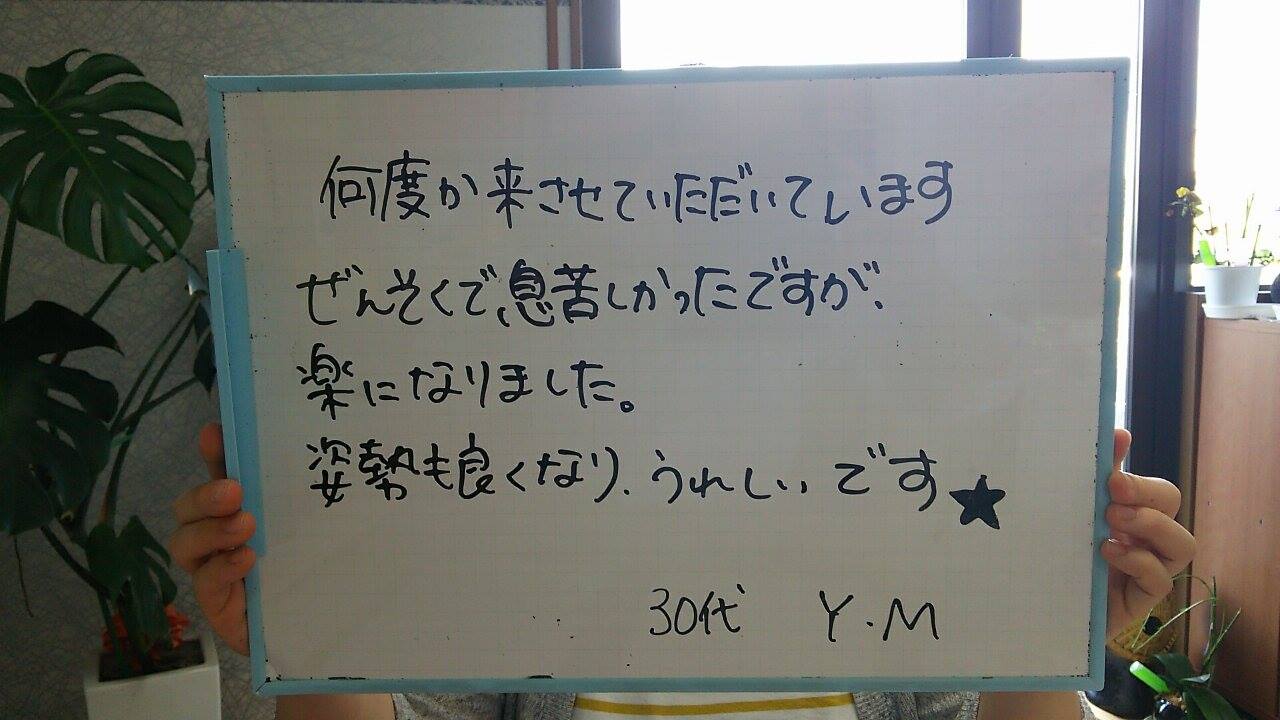 何度か来させていただいています
ぜんそくで、息苦しかったですが、
楽になりました。
姿勢も良くなり、うれしいです★
30代 Y.M